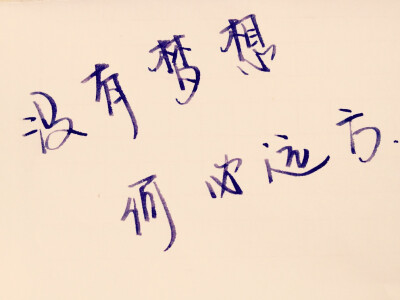 没有梦想
何必远方.